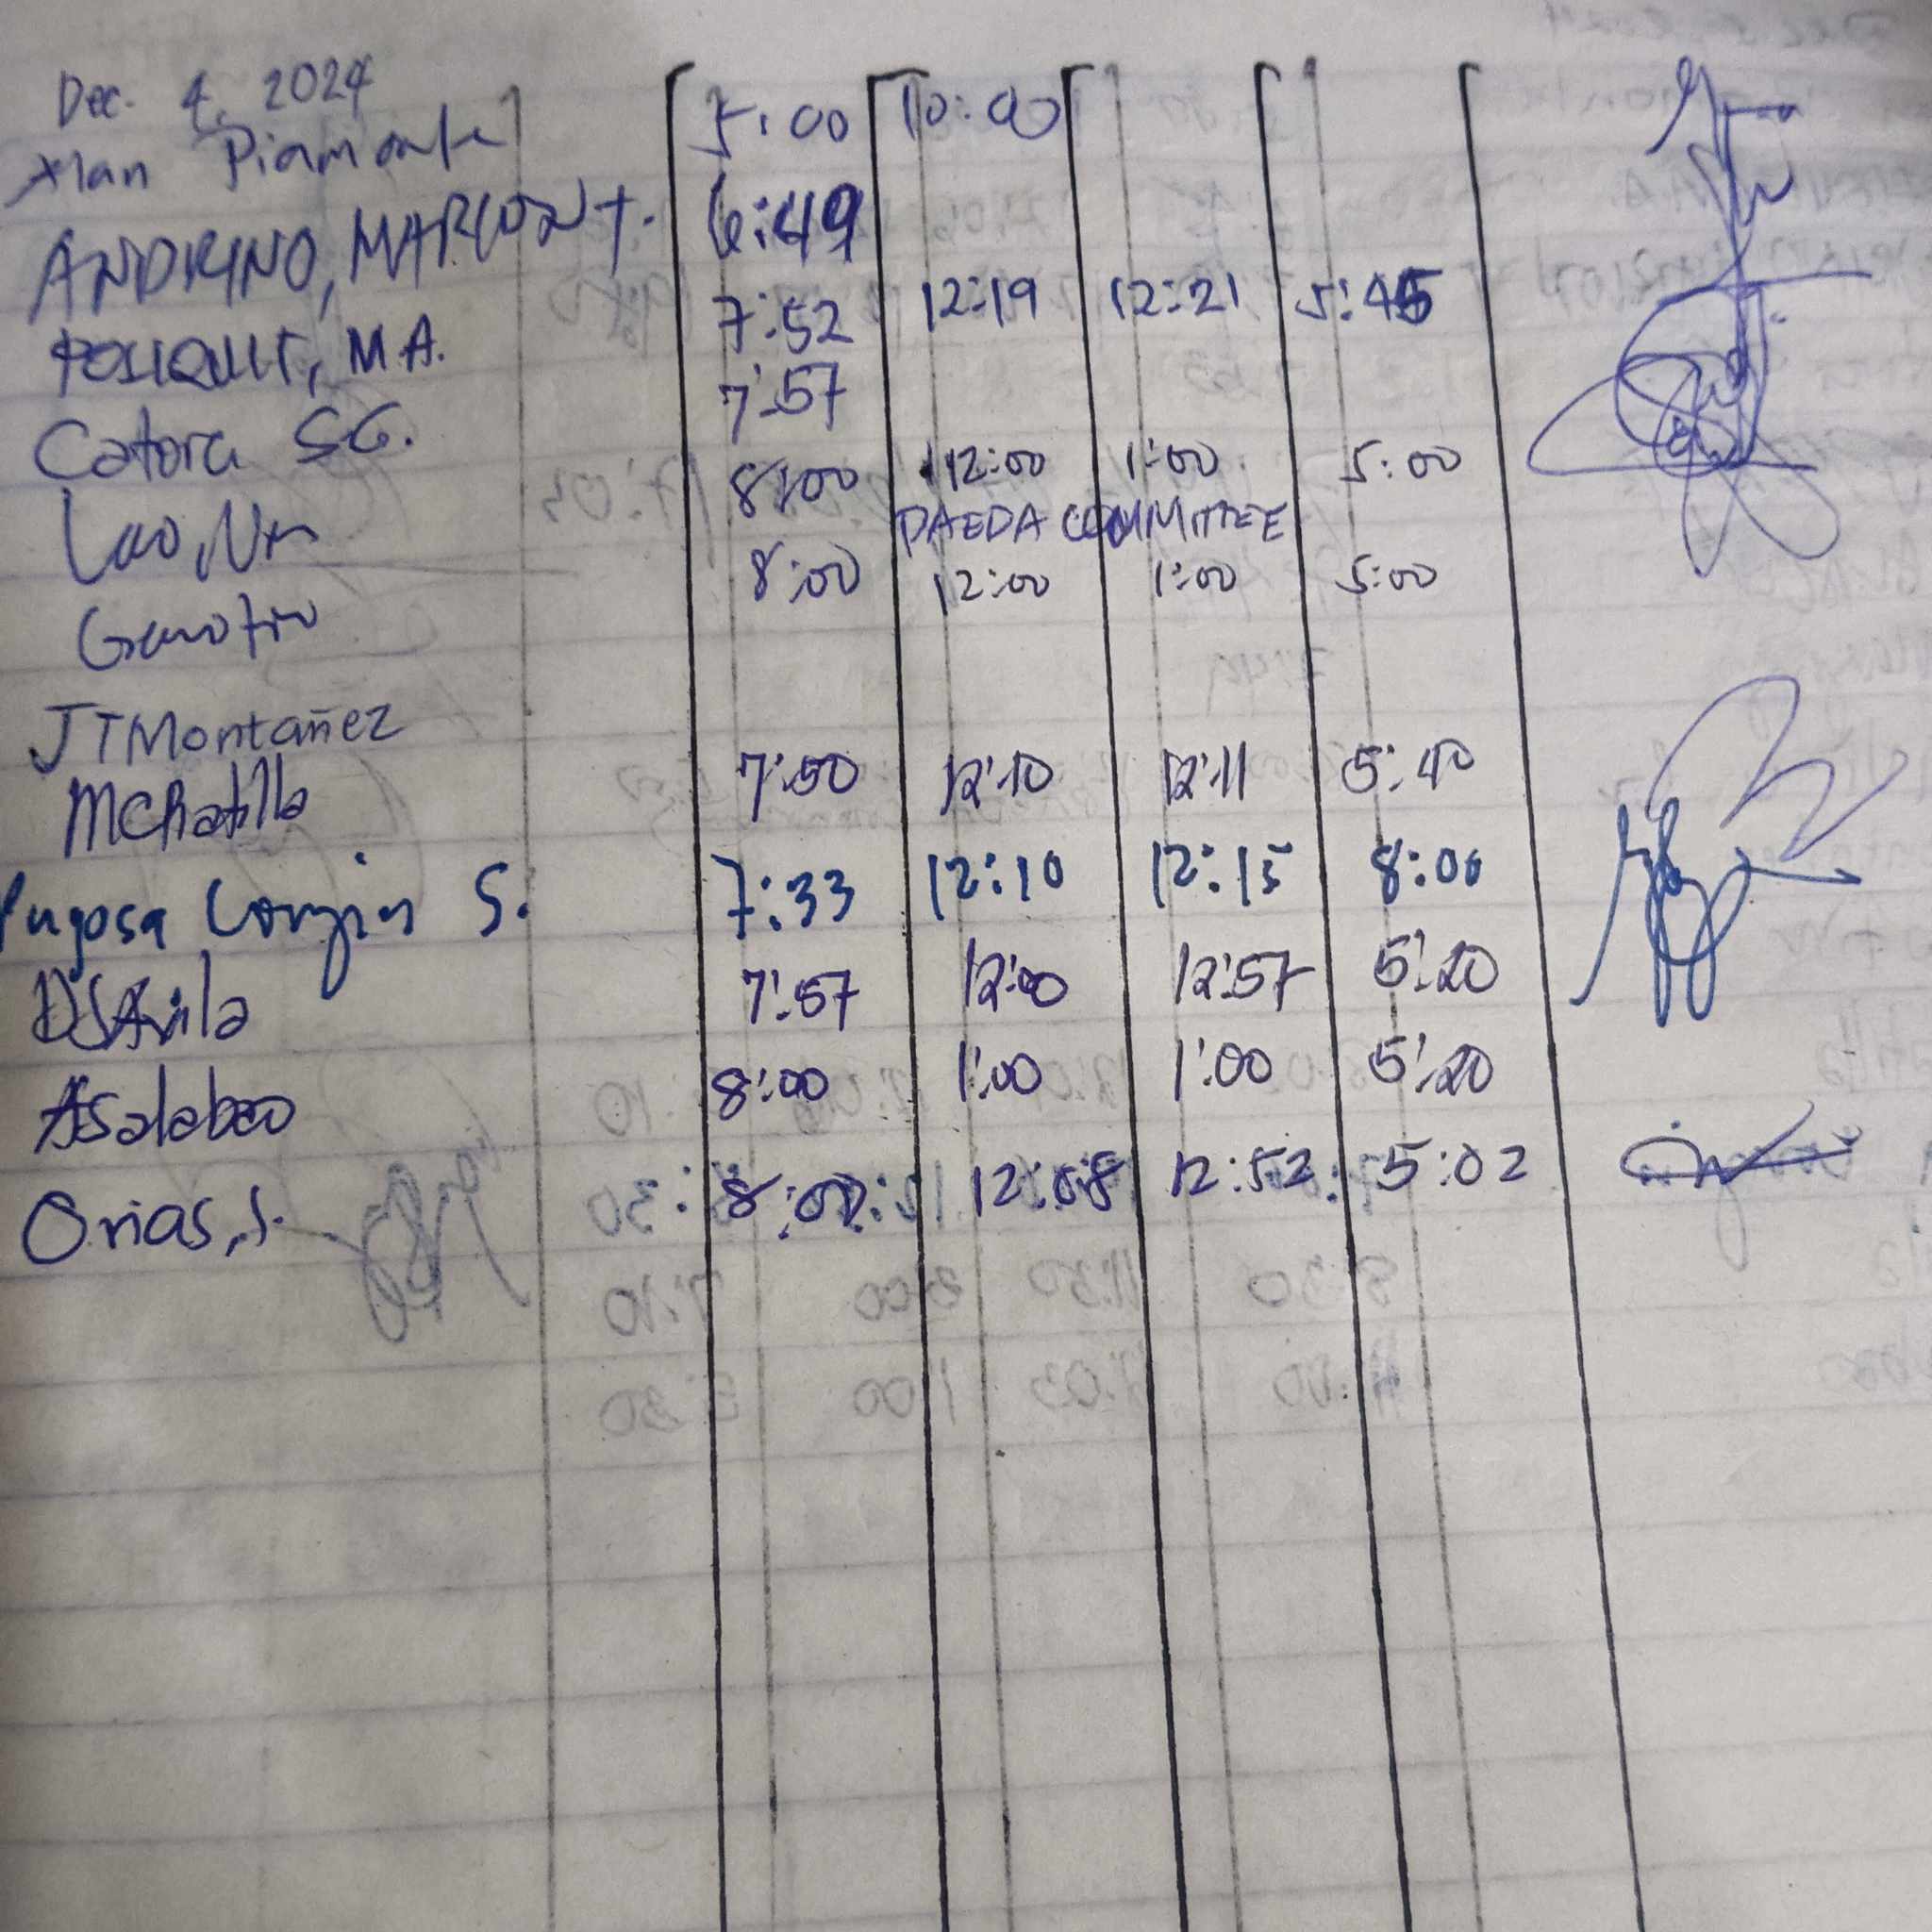 Dec. 4, 2024
Alan Piamonte 5:00 10:00
ANDRINO, MARLON T. 6:49
POLIQUIT, M.A. 7:52 12:19 12:21 5:45
Catora SG. 7:57
Lao, 8:00 12:00 1:00 5:00
PAEDA COMMITTEE
8:00 12:00 1:00 5:00
JTMontañez
MCRatilla 7:50 12:10 12:11 5:40
Pugosa S. 7:33 12:10 12:15 8:00
DSAvila 7:57 12:00 12:57 5:20
ASalabao 8:00 1:00 1:00 5:20
Orias, J. 8:02 12:08 12:52 5:02